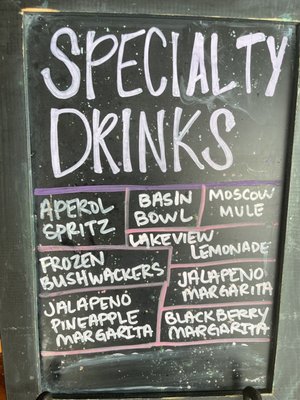 SPECIALTY
DRINKS
APEROL
SPRITZ
BASIN
BOWL
MOSCOW
MULE
LAKEVIEW
LEMONADE
FROZEN
BUSHWACKERS
JALAPENO
MARGARITA
JALAPENO
PINEAPPLE
MARGARITA
BLACKBERRY
MARGARITA